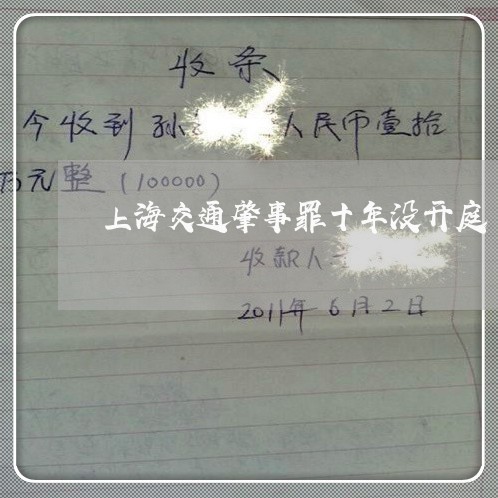 收条
今收到孙 人民币壹拾
万元整(100000)
上海交通肇事罪十年没开庭
收款人
2011年6月2日